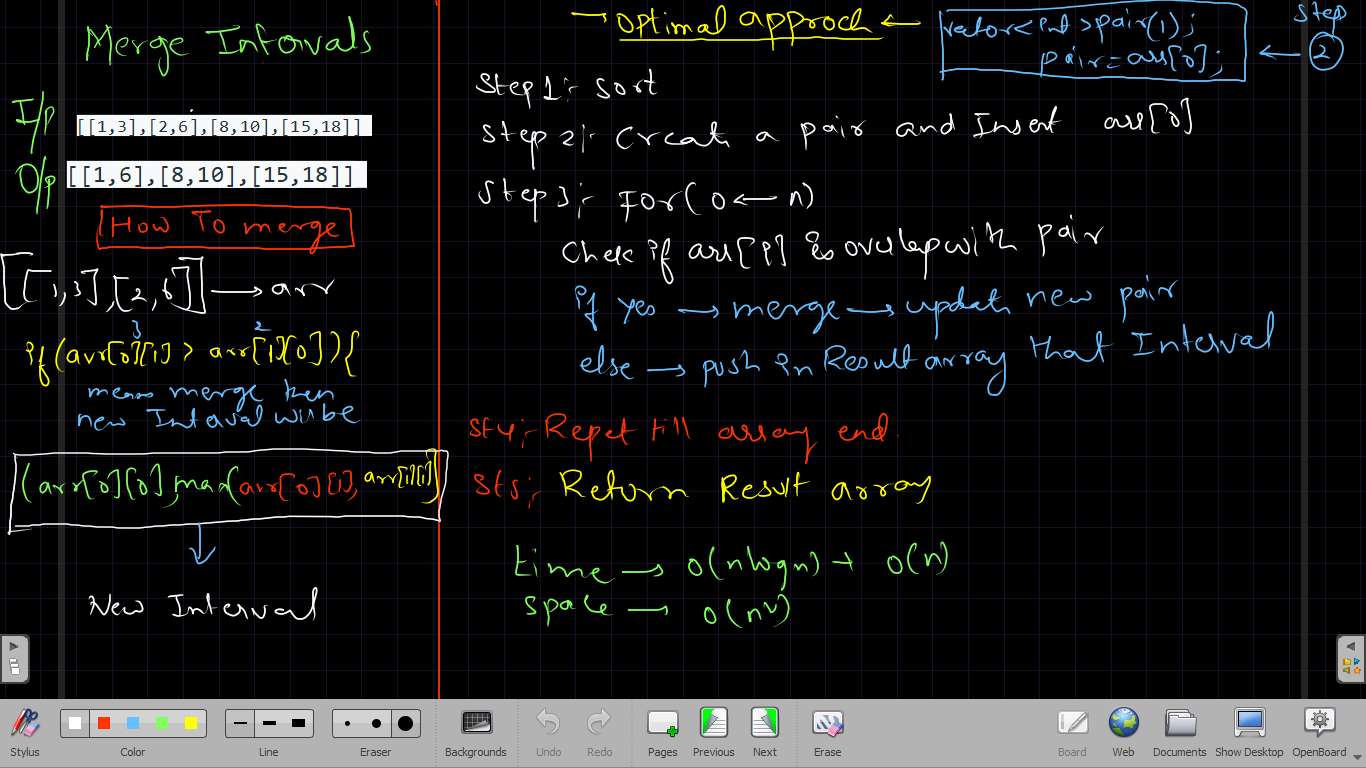 Merge Intervals
I/p
[[1,3],[2,6],[8,10],[15,18]]
O/p
[[1,6],[8,10],[15,18]]
How To merge
[[1,3],[2,6]] → arr
3 2
if(arr[0][1] > arr[1][0]){
means merge then
new Interval will be
(arr[0][0],max(arr[0][1], arr[1][1])
New Interval
→ Optimal approch ←
vector<int>pair(1);
pair=arr[0];
← Step
2
Step1:- Sort
Step 2:- Creat a pair and Insert arr[0]
Step 3:- For( 0 ← n)
Check if arr[i] is overlap with pair
if yes → merge → update new pair
else → push in Result array that Interval
St4:- Repet till array end.
St5:- Return Result array
time → O(nlogn) + O(n)
Space → O(n²)
Stylus
Color
Line
Eraser
Backgrounds
Undo
Redo
Pages
Previous
Next
Erase
Board
Web
Documents
Show Desktop
OpenBoard